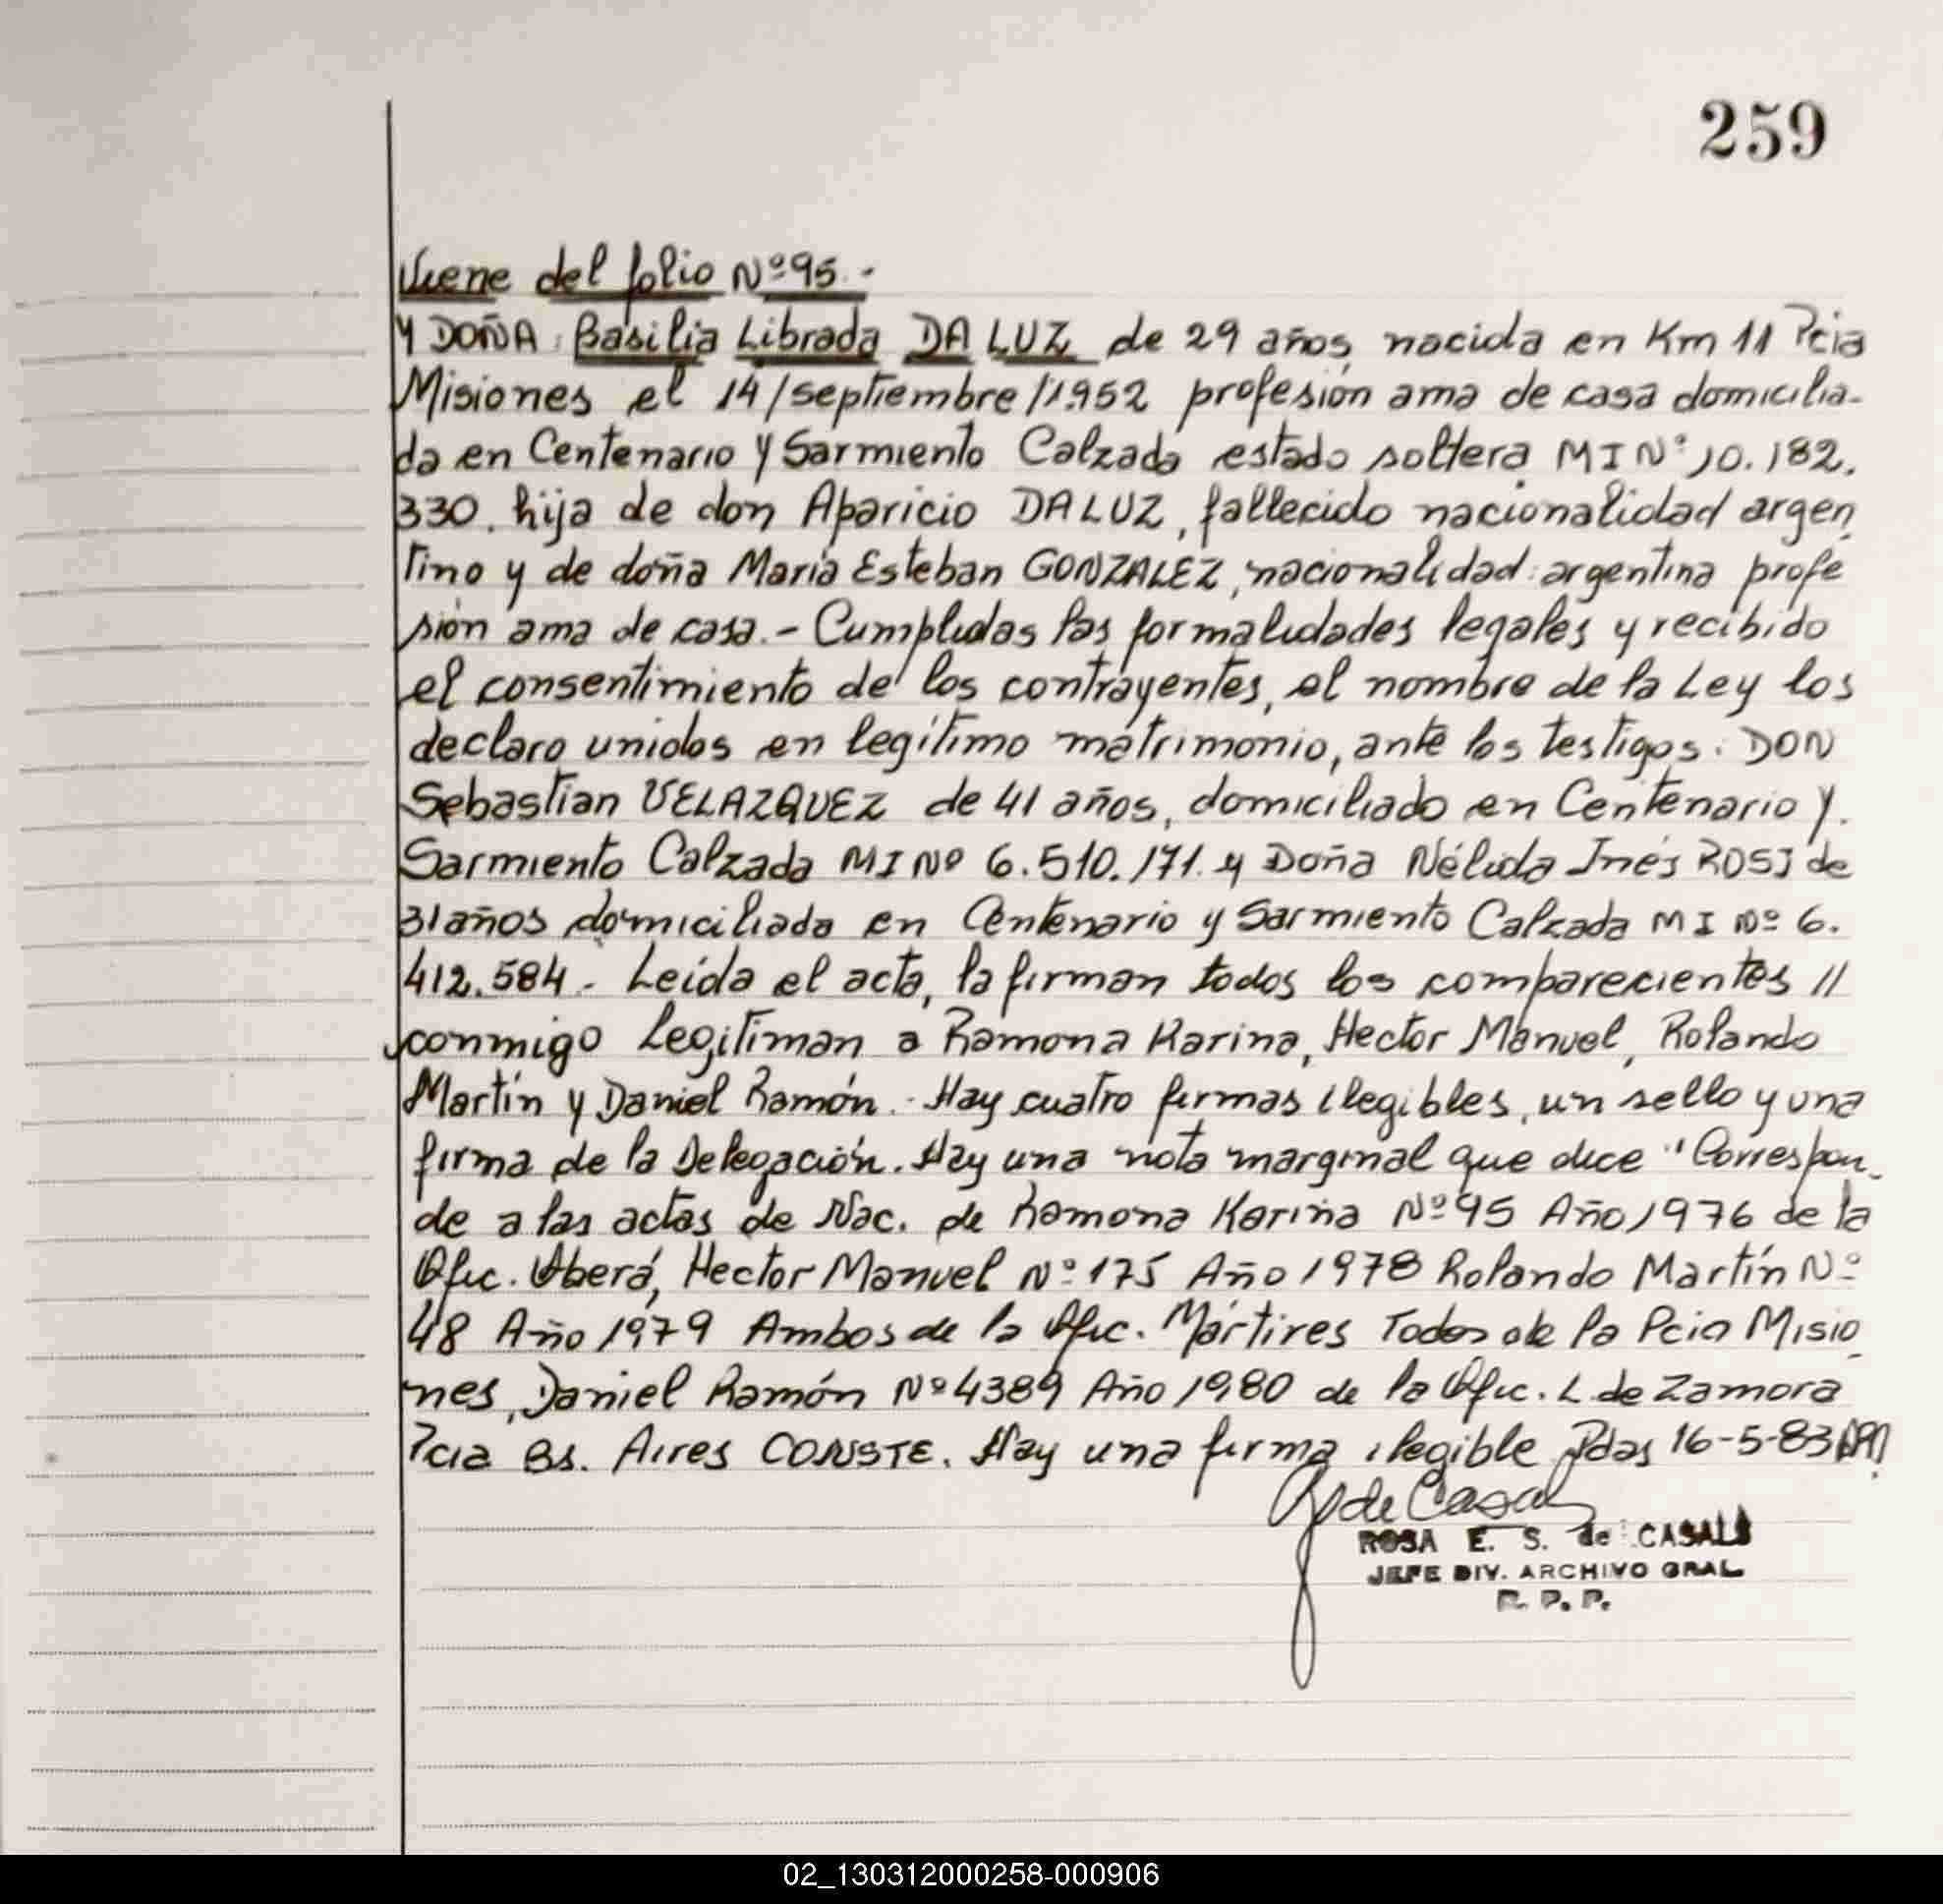 259
Viene del folio Nº 95.-
Y DOÑA: Basilia Librada DA LUZ de 29 años nacida en Km 11 Pcia
Misiones el 14/septiembre/1952 profesión ama de casa domicilia-
da en Centenario y Sarmiento Calzada estado soltera MI Nº 10.182.
330. hija de don Aparicio DA LUZ, fallecido nacionalidad argen
tino y de doña Maria Esteban GONZALEZ, nacionalidad: argentina profe
sión ama de casa.- Cumplidas las formalidades legales y recibido
el consentimiento de los contrayentes, el nombre de la Ley los
declaro unidos en legítimo matrimonio, ante los testigos: DON
Sebastian VELAZQUEZ de 41 años, domiciliado en Centenario y.
Sarmiento Calzada MI Nº 6.510.171. y Doña Nélida Inés ROSI de
31 años domiciliada en Centenario y Sarmiento Calzada MI Nº 6.
412.584.- Leída el acta, la firman todos los comparecientes //
conmigo Legitiman a Ramona Karina, Hector Manuel, Rolando
Martín y Daniel Ramón.- Hay cuatro firmas ilegibles, un sello y una
firma de la Delegación. Hay una nota marginal que dice "Correspon_
de a las actas de Nac. de Ramona Karina Nº 95 Año 1976 de la
Ofic. Oberá, Hector Manuel Nº 175 Año 1978 Rolando Martín Nº
48 Año 1979 Ambos de la Ofic. Mártires Todos de la Pcia Misio_
nes, Daniel Ramón Nº 4389 Año 1980 de la Ofic. L. de Zamora
Pcia Bs. Aires CONSTE. Hay una firma ilegible Pdas 16-5-83
de Casals
ROSA E. S. de CASALS
JEFE DIV. ARCHIVO GRAL
R. P. P.
02_130312000258-000906